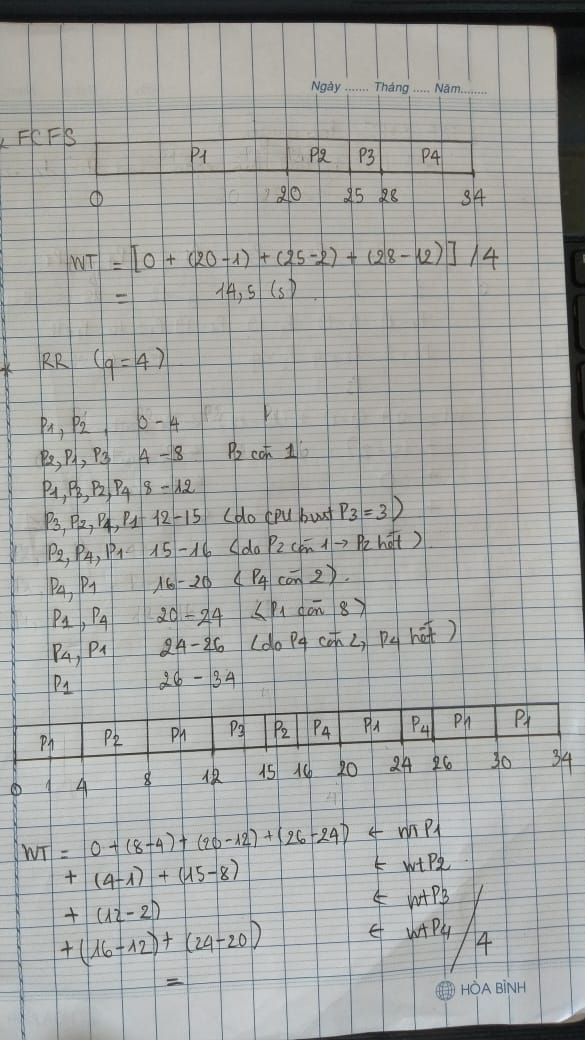 Ngày ....... Tháng ..... Năm........
* FCFS
P1 P2 P3 P4
0 20 25 28 34
WT = [0 + (20-1) + (25-2) + (28-12)] / 4
= 14,5 (s)
* RR (q=4)
P1, P2 0-4
P2, P1, P3 4-8 P2 còn 1
P1, P3, P2, P4 8-12
P3, P2, P4, P1 12-15 (do CPU bust P3 = 3)
P2, P4, P1 15-16 (do P2 còn 1 → P2 hết)
P4, P1 16-20 (P4 còn 2).
P1, P4 20-24 (P1 còn 8)
P4, P1 24-26 (do P4 còn 2, P4 hết)
P1 26-34
P1 P2 P1 P3 P2 P4 P1 P4 P1 P1
0 1 4 8 12 15 16 20 24 26 30 34
WT = 0 + (8-4) + (20-12) + (26-24) ← WTP1
+ (4-1) + (15-8) ← wtP2
+ (12-2) ← wtP3
+ (16-12) + (24-20) ← wtP4 / 4
=
HÒA BÌNH